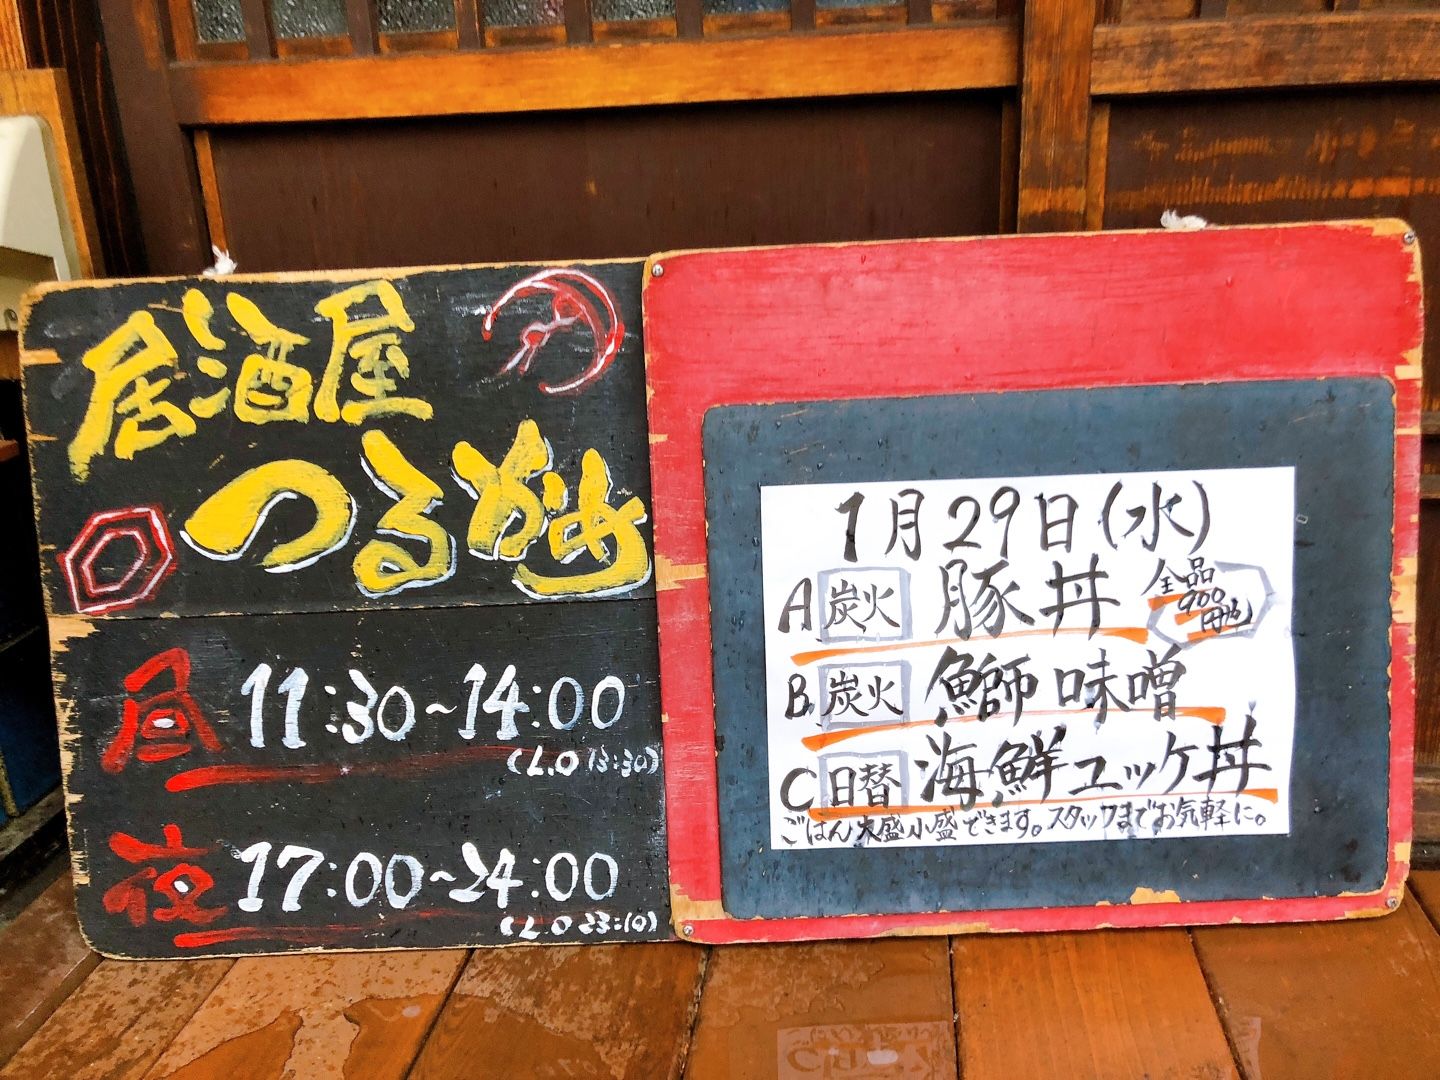 居酒屋
つるかめ
昼 11:30~14:00
(L.O 13:30)
夜 17:00~24:00
(L.O 23:10)
1月29日(水)
A 炭火 豚丼
全品
900
円
B 炭火 鰤味噌
C 日替 海鮮ユッケ丼
ごはん大盛小盛できます。スタッフまでお気軽に。